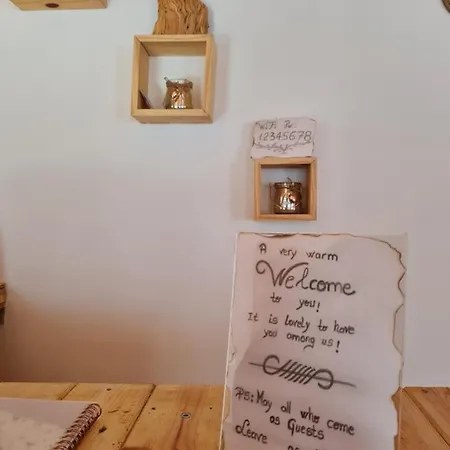 Wifi Pw:
12345678
A very warm
Welcome
to you!
It is lovely to have
you among us!
PS: May all who come
as Guests
Leave